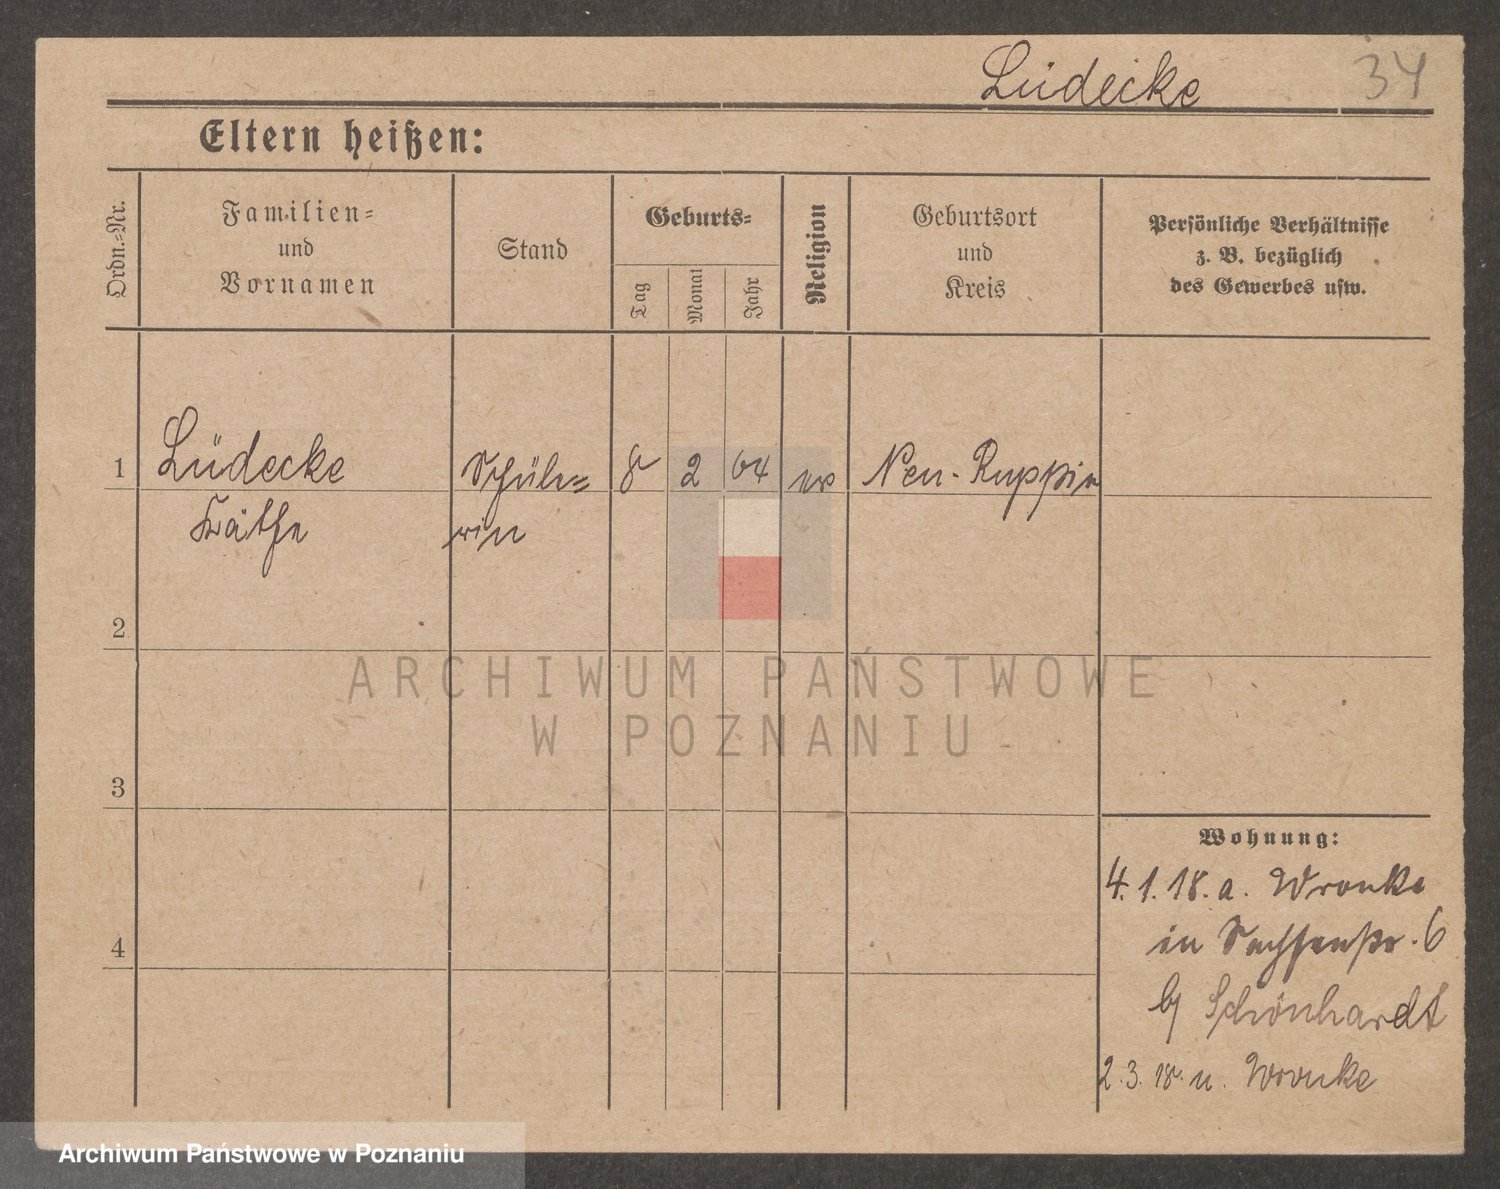 Lüdecke 34
Eltern heißen:
Ordn.-Nr.
Familien-
und
Vornamen
Stand
Geburts-
Tag
Monat
Jahr
Religion
Geburtsort
und
Kreis
Persönliche Verhältnisse
z. B. bezüglich
des Gewerbes usw.
1 Lüdecke Schüle- 8 2 04 ev Neu-Ruppin
Käthe rin
2
ARCHIWUM PAŃSTWOWE
W POZNANIU
3
Wohnung:
4. 1. 18. a. Wronke
in Sachsenstr. 6
b/ Schönhardt
4
2. 3. 18. n. Wronke
Archiwum Państwowe w Poznaniu